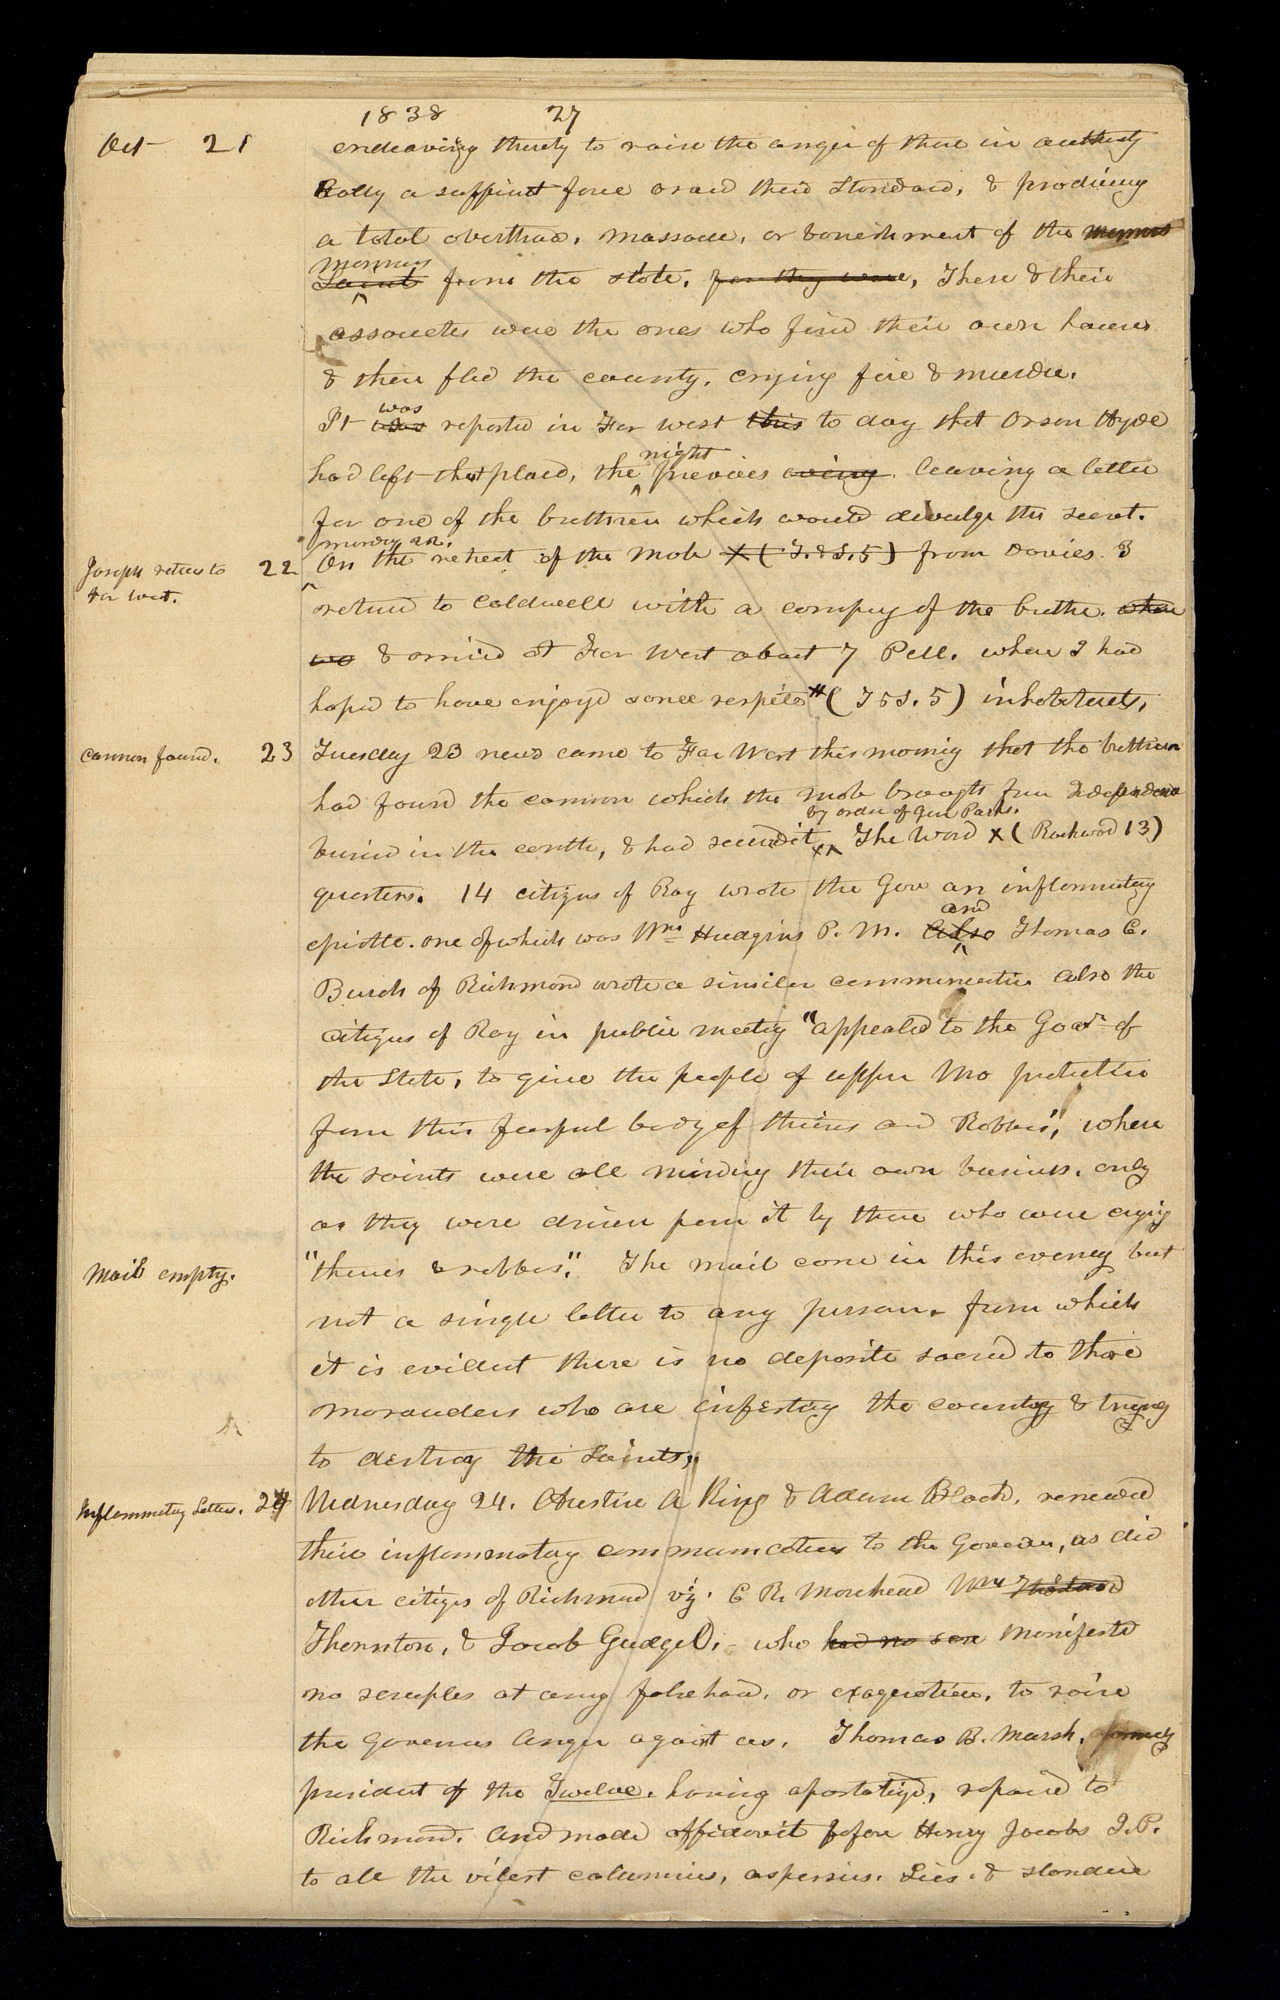 1838 27
Oct 21 endeaving thereby to raise the anger of those in authority
Rally a suffient force around their Standard, & producing
a total overthrow, massacre, or banishment of the mormons
mormons
Saints from the state. for they were, These & their
associates were the ones who fired their own houses
& then fled the county, crying fire & murder.
was
It was reported in Far west this to day that Orson Hyde
night
had left that place, the previous evening leaving a letter
for one of the brethren which would divulge the secret.
monday 22.
Joseph returns to Far West. 22 On the retreat of the mob X (T. & S. 5) from Davies. I
return to Caldwell with a compny of the brethe. when
we & arrived at Far West about 7 P.M. where I had
hoped to have enjoyd some respite # (T & S. 5) inhabitants,
cannon found. 23 Tuesday 23 news came to Far West this morning that the brethren
had found the cannon which the mob brought from Independence
by order of Gen Parks.
buried in the earth, & had secured it The Word X (Rockwood 13)
quarters. 14 citizns of Ray wrote the Gov an inflammatory
and
epistle. one of which was Wm Hudgins P. M. Also Thomas C.
Burch of Richmond wrote a similar communicatin also the
citizns of Ray in public meetig "appealed to the Govr of
the State, to give the people of upper Mo protectin
from this fearful body of thieves and Robbers", where
the saints were all minding their own business. only
as they were driven from it by those who were crying
"theives & robbers". The mail came in this evening but
Mail empty. not a single letter to any person. from which
it is evident there is no deposite sacred to those
marauders who are infesting the country & trying
to destroy the Saints,
Inflammatory Letters. 24 Wednesday 24. Austin A King & Adam Black, renewed
their inflammatory communications to the Governr, as did
other citizns of Richmond viz. C R. Morehead Wm Thornton
Thornton, & Jacob Gudgel. who had no scru manifested
no scruples at any falsehood, or exageration, to raise
the Governors Anger against us. Thomas B. Marsh, formerly
president of the Twelve. having apostatizd, repaired to
Richmond. And made affidavit before Henry Jacobs J.P.
to all the vilest calumnies, aspersins, Lies & slanders